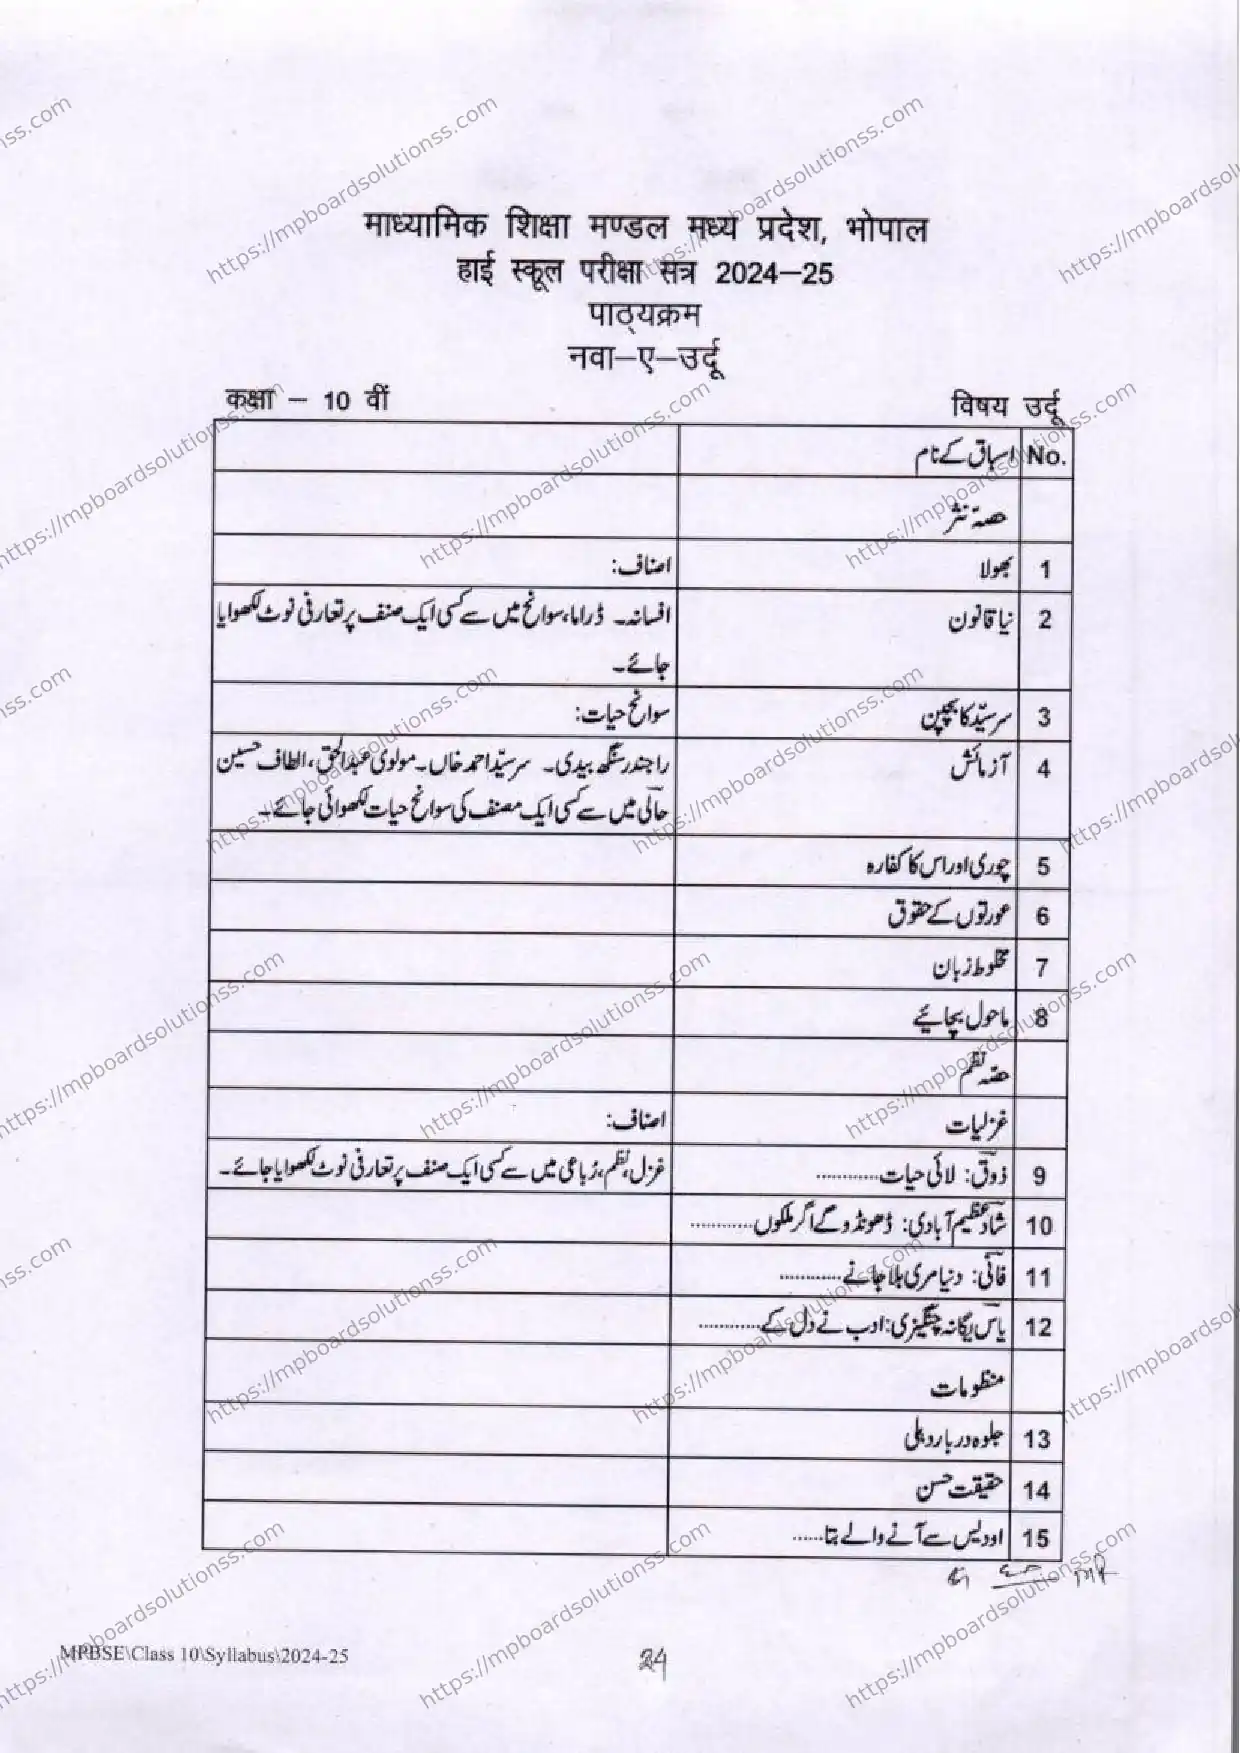 माध्यामिक शिक्षा मण्डल मध्य प्रदेश, भोपाल
हाई स्कूल परीक्षा सत्र 2024–25
पाठ्यक्रम
नवा–ए–उर्दू
कक्षा – 10 वीं
विषय उर्दू
No. اسباق کے نام
حصۂ نثر
1 بھولا
اصناف:
2 نیا قانون
افسانہ۔ ڈراما، سوانح میں سے کسی ایک صنف پر تعارفی نوٹ لکھوایا
جائے۔
3 سرسیّد کا بچپن
سوانح حیات:
4 آزمائش
راجندر سنگھ بیدی۔ سرسیّد احمد خاں۔ مولوی عبدالحق، الطاف حسین
حالی میں سے کسی ایک مصنف کی سوانح حیات لکھوائی جائے۔
5 چوری اور اس کا کفارہ
6 عورتوں کے حقوق
7 مخلوط زبان
8 ماحول بچائیے
حصّہ نظم
غزلیات
اصناف:
9 ذوق: لائی حیات............
غزل، نظم، رُباعی میں سے کسی ایک صنف پر تعارفی نوٹ لکھوایا جائے۔
10 شاد عظیم آبادی: ڈھونڈو گے اگر ملکوں............
11 فانی: دنیا مری بلا جانے............
12 یاس یگانہ چنگیزی: ادب نے دل کے............
منظومات
13 جلوہ دربار دہلی
14 حقیقت حسن
15 او دیس سے آنے والے بتا......
MPBSE\Class 10\Syllabus\2024-25
24
https://mpboardsolutionss.com